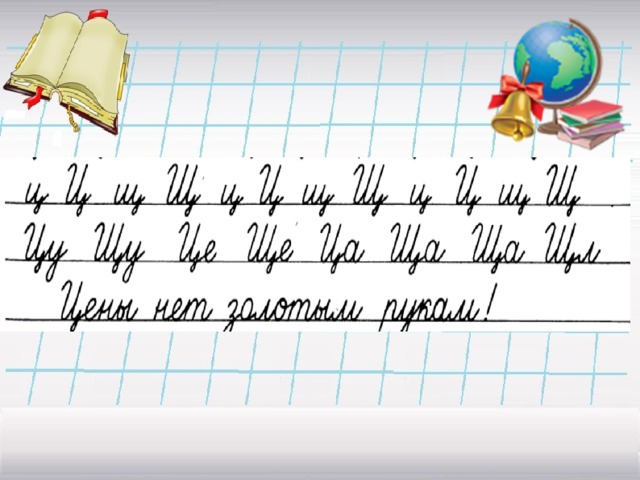 ц Ц щ Щ ц Ц щ Щ ц Ц щ Щ
Цу Щу Це Ще Ца Ща Ща Щл
Цены нет золотым рукам!